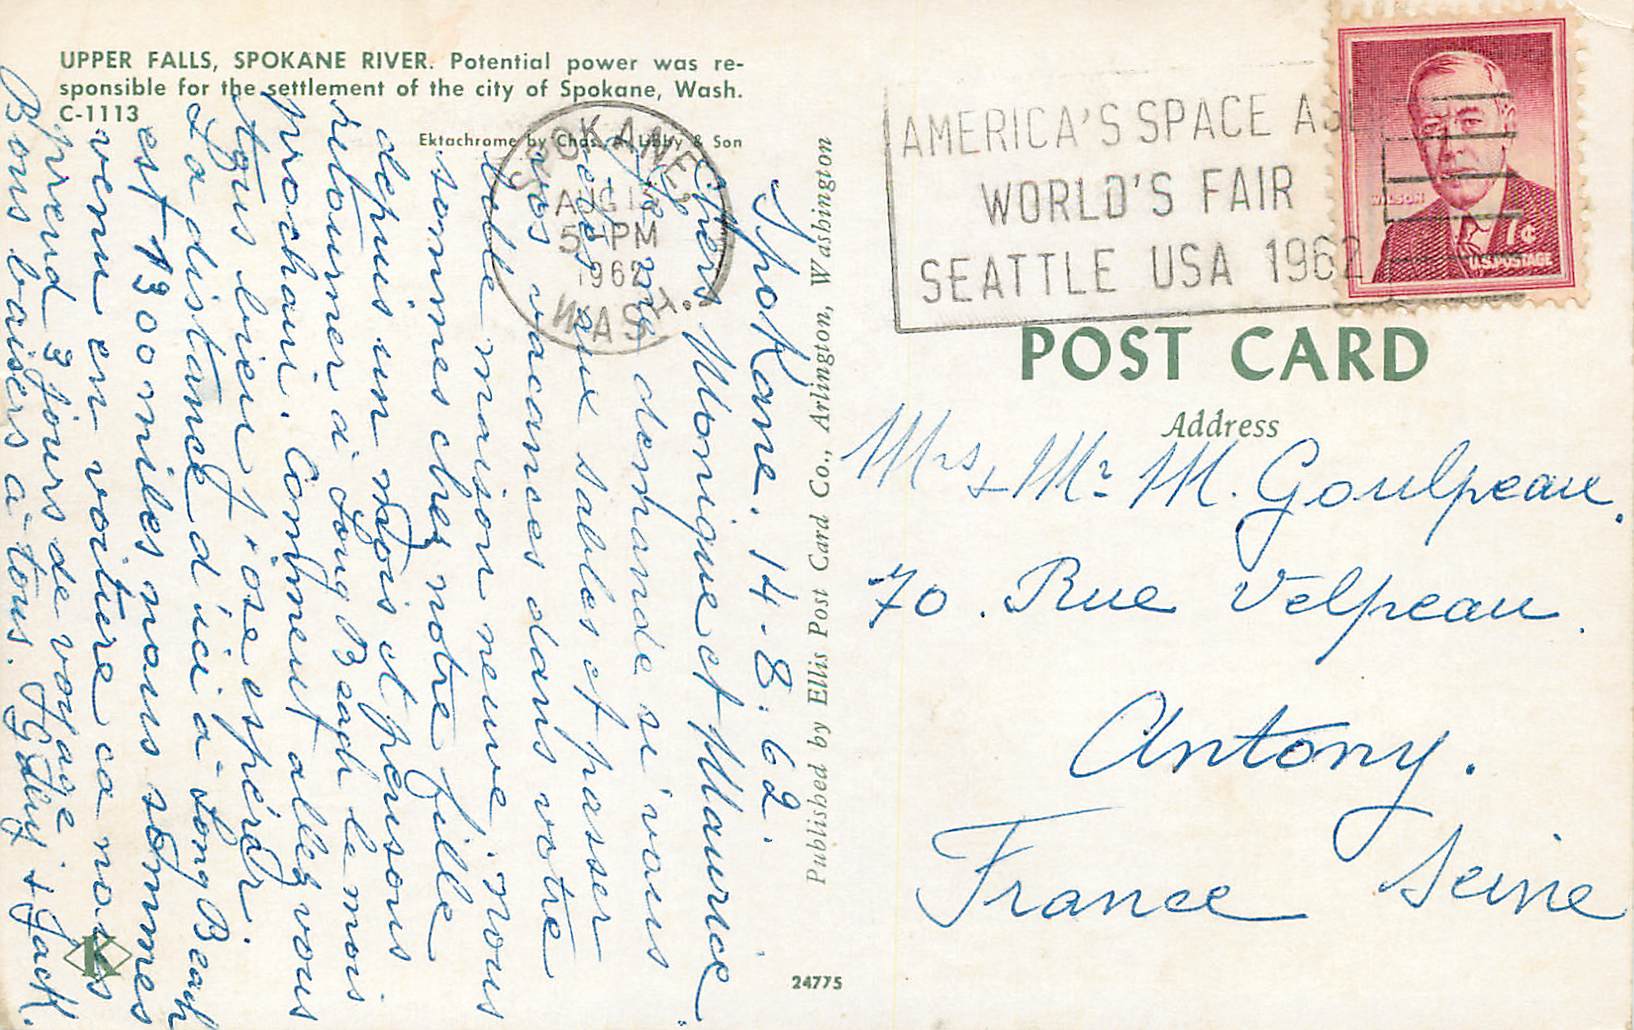 UPPER FALLS, SPOKANE RIVER. Potential power was re-
sponsible for the settlement of the city of Spokane, Wash.
C-1113
Ektachrome by Chas. A. Libby & Son
SPOKANE
AUG 15
5 PM
1962
WASH.
Spokane. 14-8.62.
Chers Monique et Maurice
Je me demande si vous
êtes aux sables et passer
vos vacances dans votre
belle maison neuve. nous
sommes chez notre fille
depuis un mois et pensons
retourner à Long Beach le mois
prochain. Comment allez vous
tous bien j'ose espérer.
La distance d'ici à Long Beach
est 1300 miles nous sommes
venu en voiture ca nous
prend 3 jours de voyage
Bons baisers à tous. & Jack.
K
Published by Ellis Post Card Co., Arlington, Washington
24775
AMERICA'S SPACE AGE
WORLD'S FAIR
SEATTLE USA 1962
WILSON
7¢
U.S. POSTAGE
POST CARD
Address
Mrs & Mr M. Goulpeau.
70. Rue Velpeau.
Antony.
Seine
France